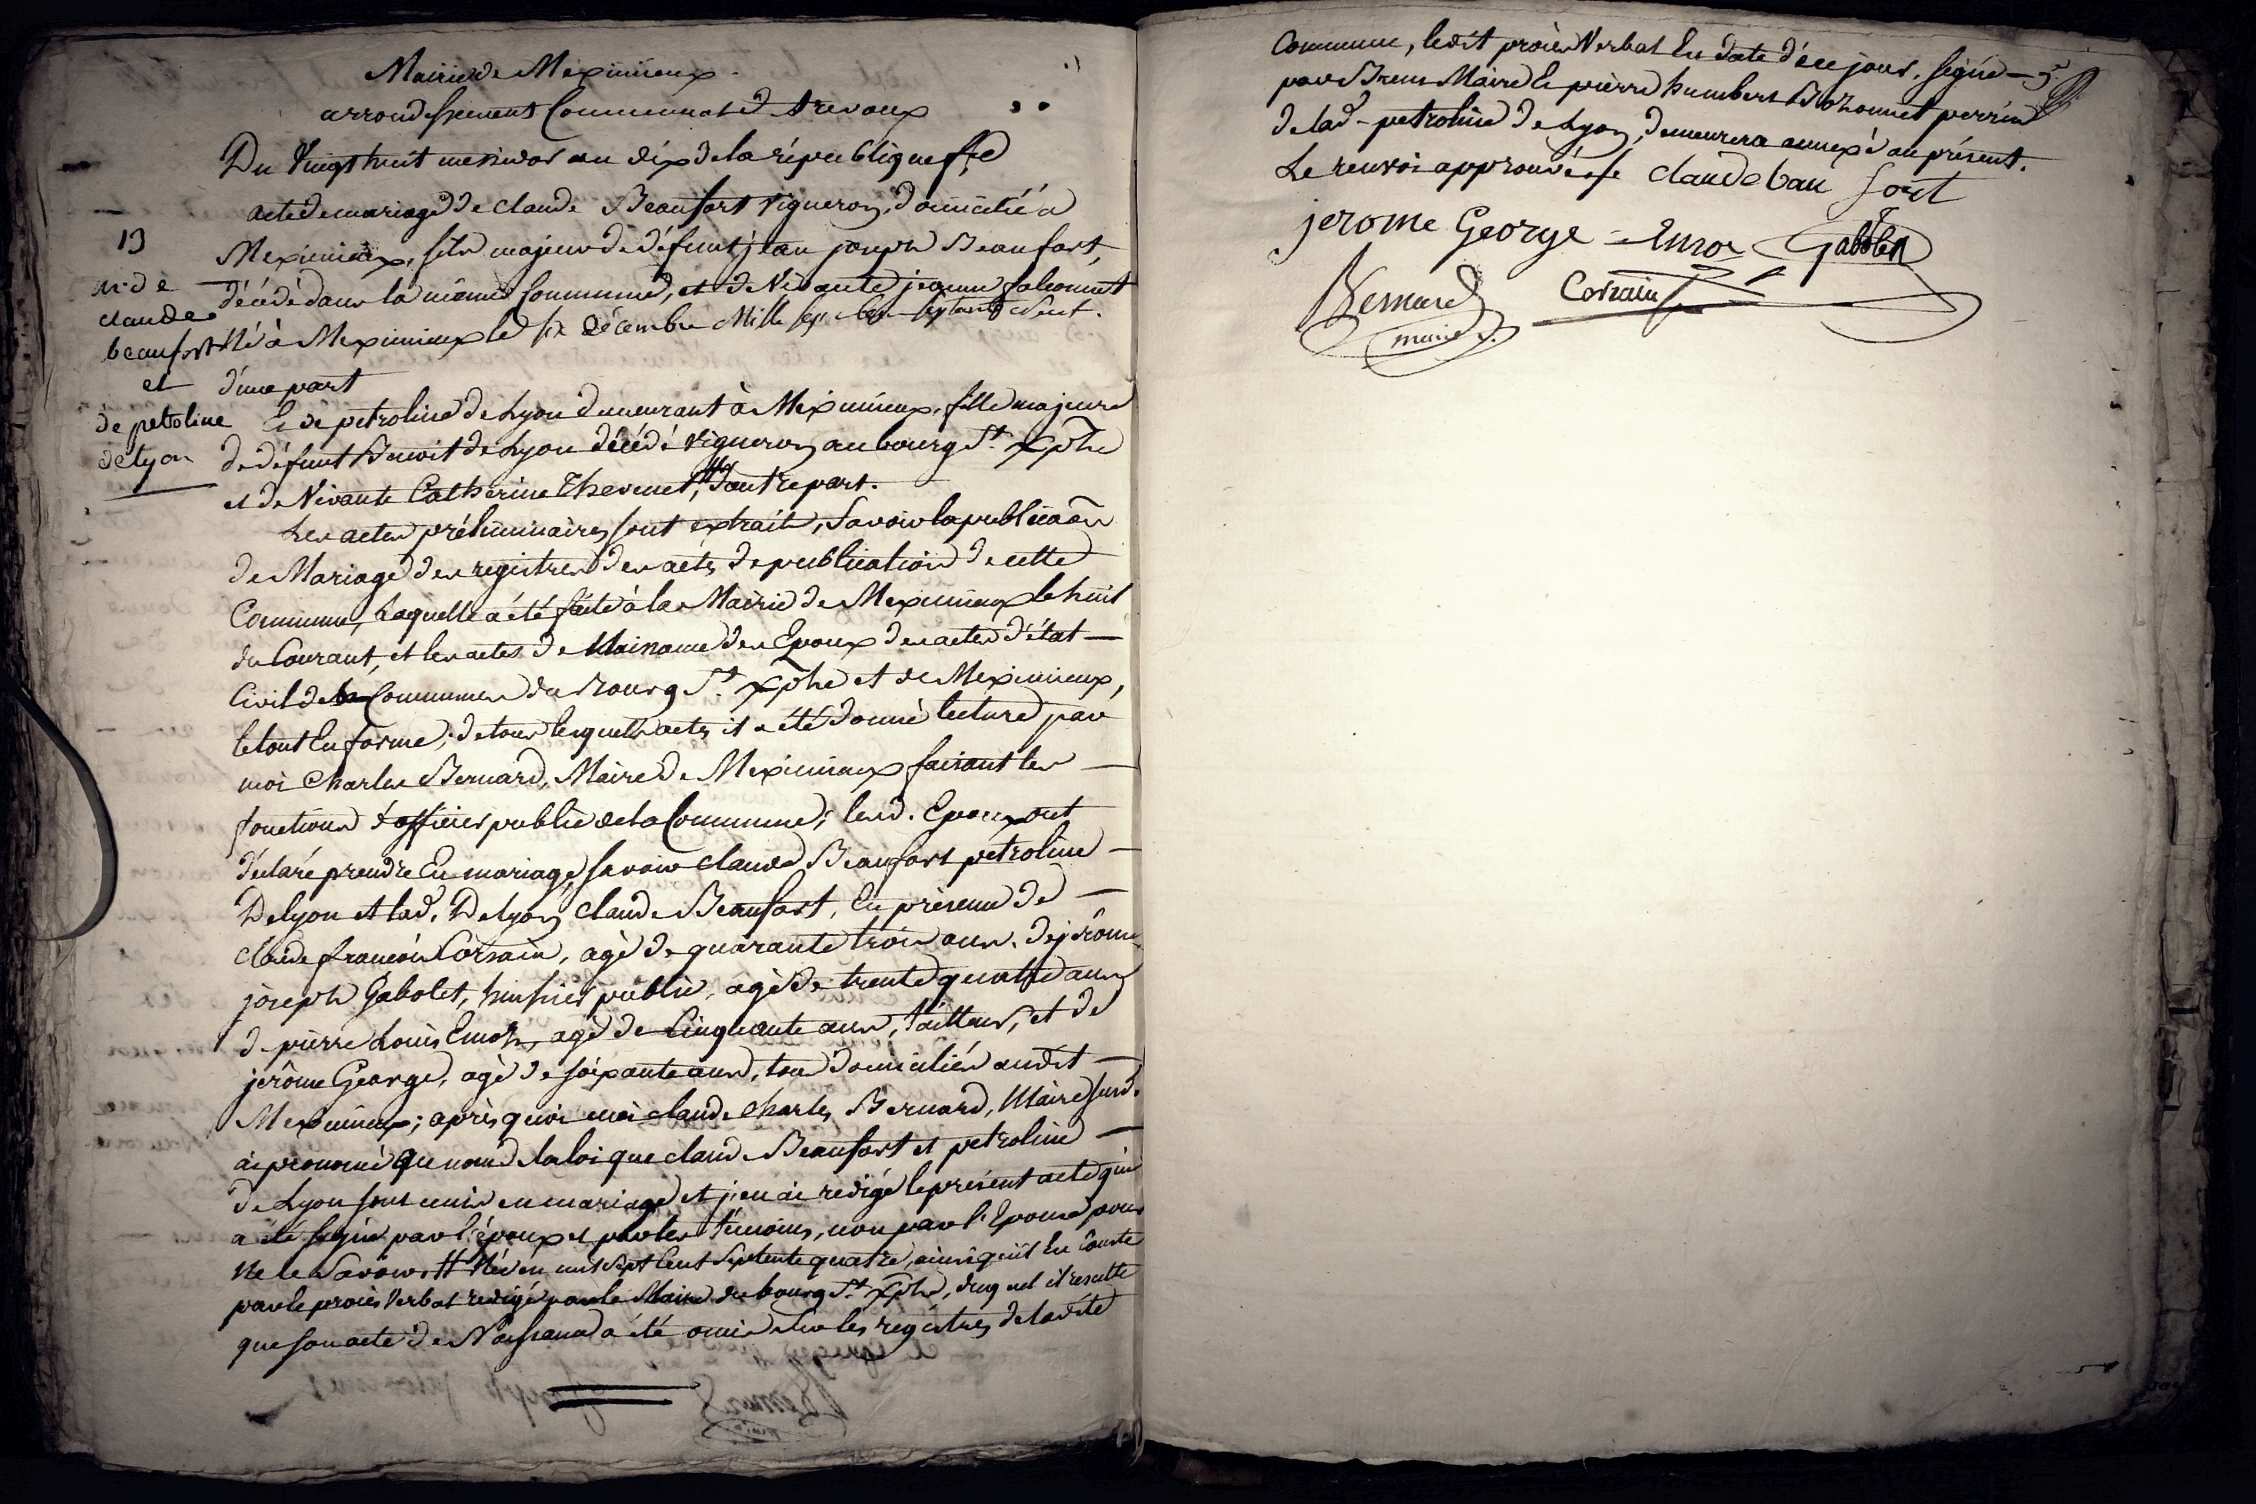 Mairie de Meximieux
arrondissement Communal de trevoux
Du Vingt huit messidor an dix de la république fse
acte de mariage de claude Beaufort Vigneron, domicilié à
13
Meximieux, fils majeur de défunt jean joseph Beaufort,
décédé dans la même Commune, et de Vivante jeanne
Né à Meximieux le six Décembre Mille sept cent septante
d'une part
m. de
claude
beaufort
et
de petroline
de lyon
Et de petroline de Lyon demeurant à Meximieux, fille majeure
de défunt Benoit de Lyon décédé Vigneron au bourg St. Xphe
et de Vivante Catherine Thevenet, # d'autre part.
Les actes préliminaires sont extraits, Savoir la publicaõn
de Mariage des registres des actes de publication de cette
Commune, Laquelle a été faite à la Mairie de Meximieux le huit
du Courant, et les actes de Naissance des Epoux des actes d'état
Civil des Communes du Bourg St. Xphe et de Meximieux,
le tout En forme; de tous lesquels actes il a été donné lecture par
moi Charles Bernard, Maire de Meximieux faisant les
fonctions d'officier public de la Commune; lesd. Epoux ont
déclaré prendre En mariage, savoir claude Beaufort petroline
De lyon et lad. De lyon claude Beaufort, En présence de
claude françois Corsain, agé de quarante trois ans, de jérôme
joseph Gabolet, huissier public, agé de trente quatre ans
de pierre Louis Emoz, agé de Cinquante ans, tailleur, et de
jerôme George, agé de soixante ans, tous domiciliés audit
Meximieux; après quoi moi claude charles Bernard, Maire susd.
ai prononcé qu'au nom de la loi que claude Beaufort et petroline
de Lyon sont unis en mariage et j'en ai redigé le présent acte qui
a été signé par l'époux et par les témoins, non par l'Epouse pour
Ne le Savoir. # Née en mil sept Cent Septente quatre, ainsi qu'il En Conste
par le procès Verbal redigé par le Maire du bourg St. Xphe, duquel il resulte
que son acte de Naissance a été omis sur les régistres de ladite
Commune, ledit procès Verbal En date d'ece jour, signé
par Maire le pierre humbert perrin
de lad. petroline de Lyon, demeurera annexé au présent.
Le renvoi approuvé claude bau fort
jerome George Emoz Gabolet
Bernard Corsain
maire